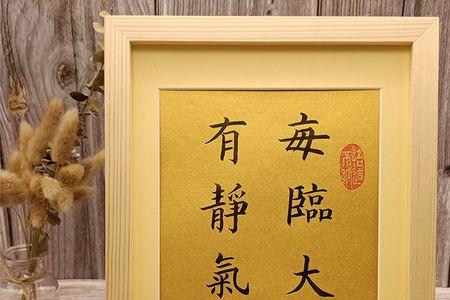 每臨大
有靜氣